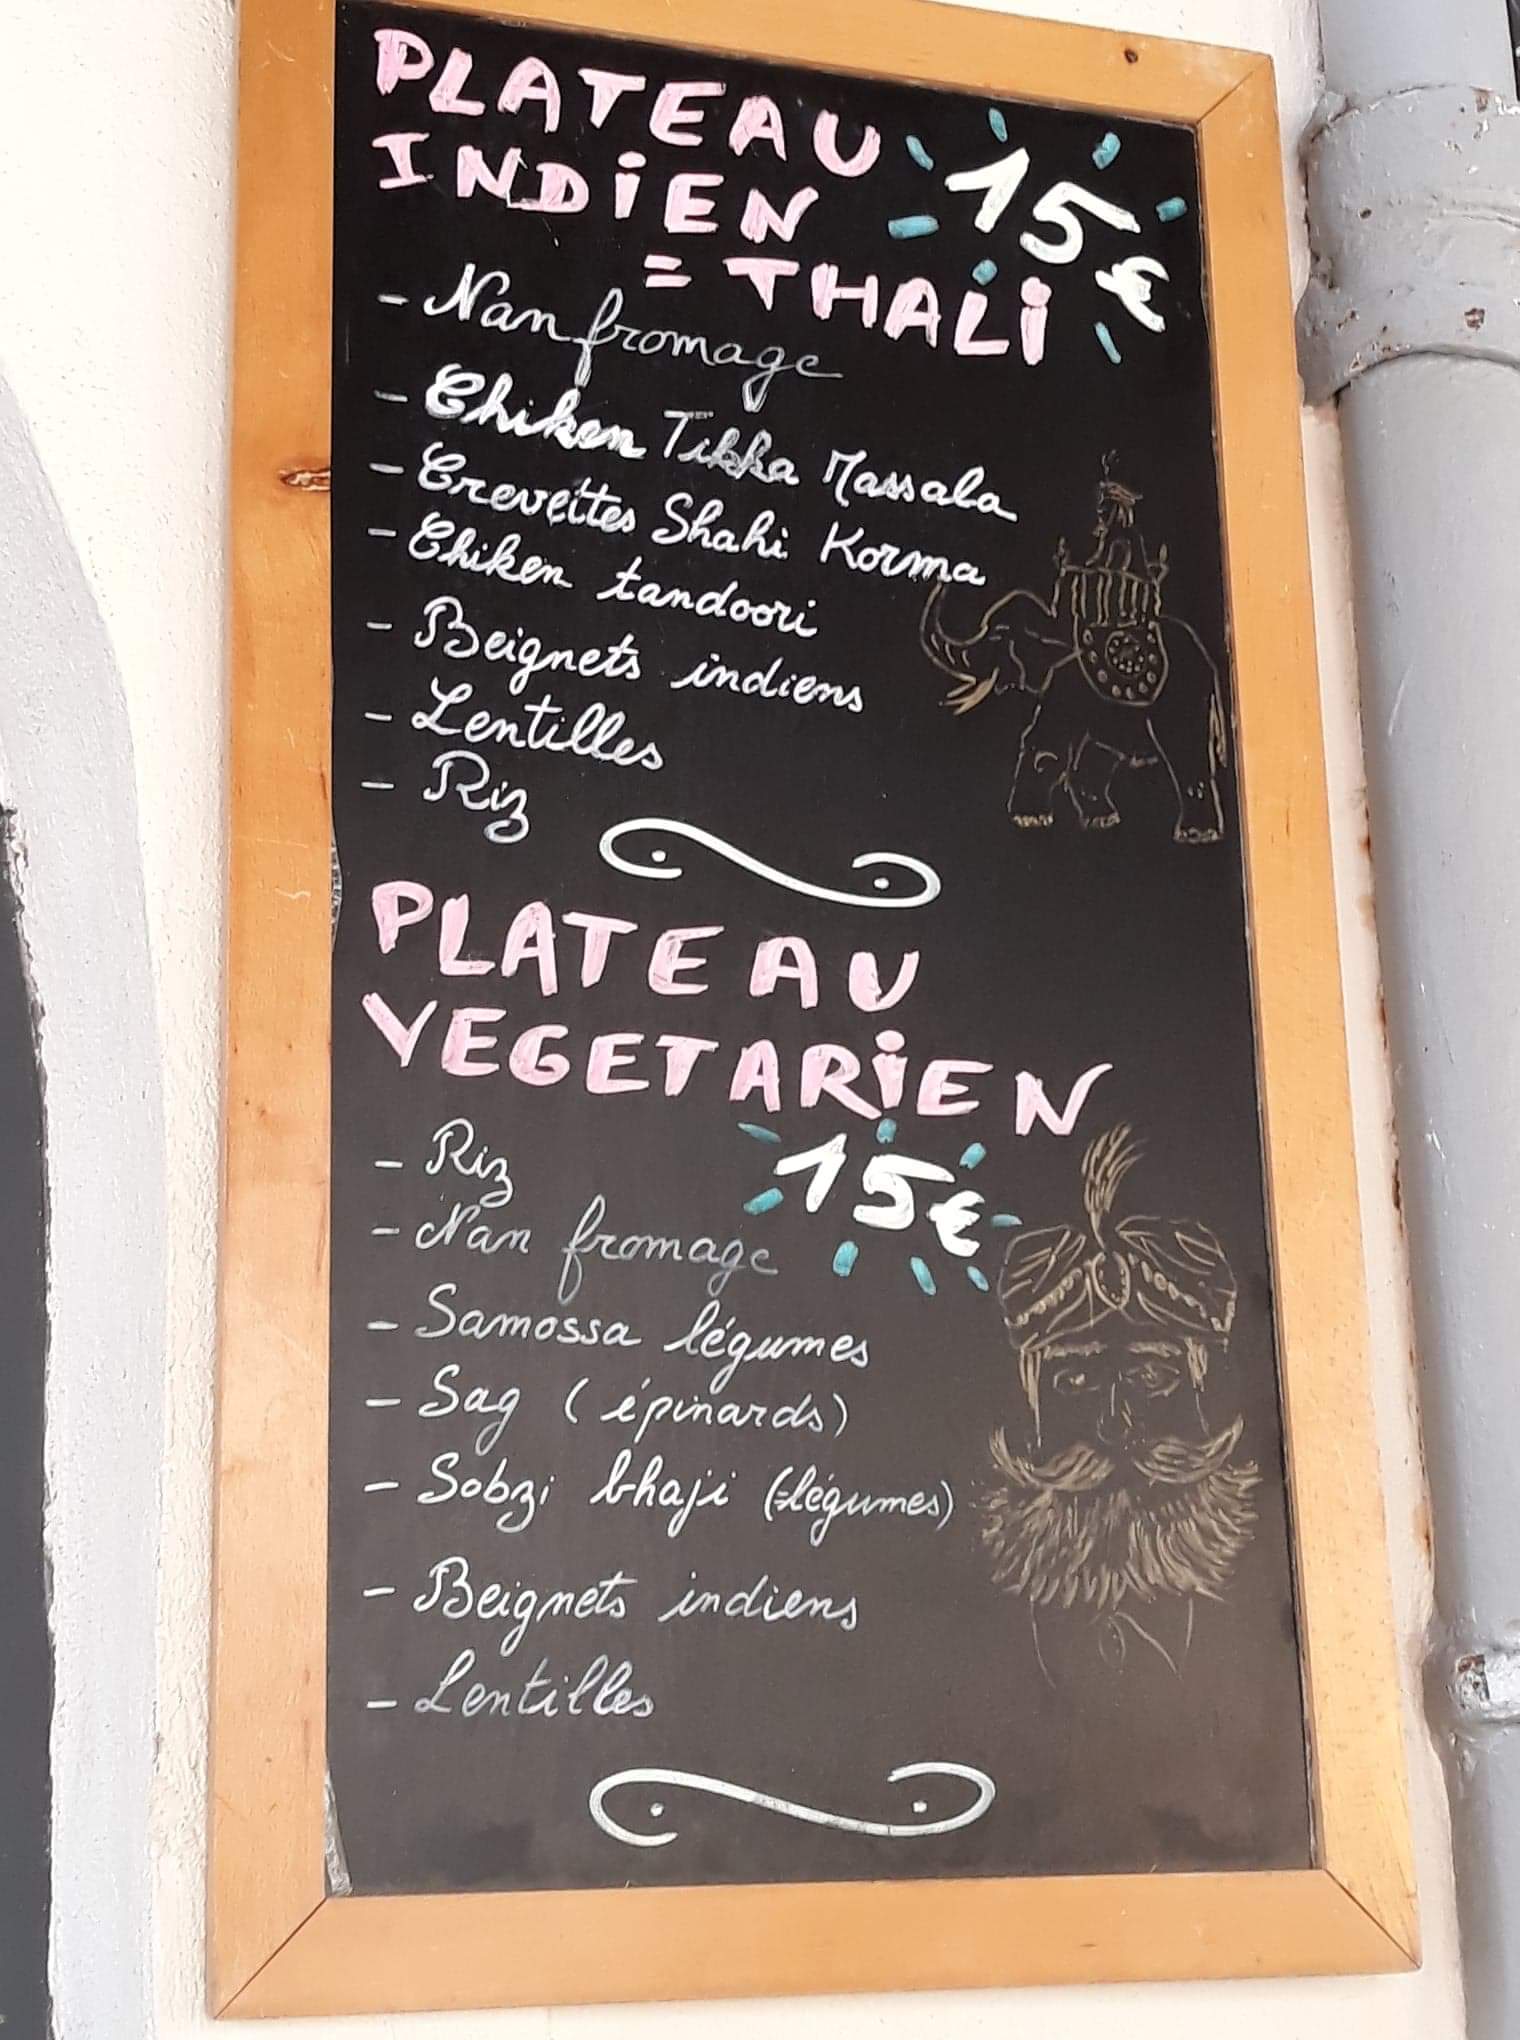 PLATEAU
INDiEN 15€
= THALi
- Nan fromage
- Chiken Tikka Massala
- Crevettes Shahi Korma
- Chiken tandoori
- Beignets indiens
- Lentilles
- Riz
PLATEAU
VEGETARiEN
15€
- Riz
- Nan fromage
- Samossa légumes
- Sag (épinards)
- Sobzi bhaji (=légumes)
- Beignets indiens
- Lentilles